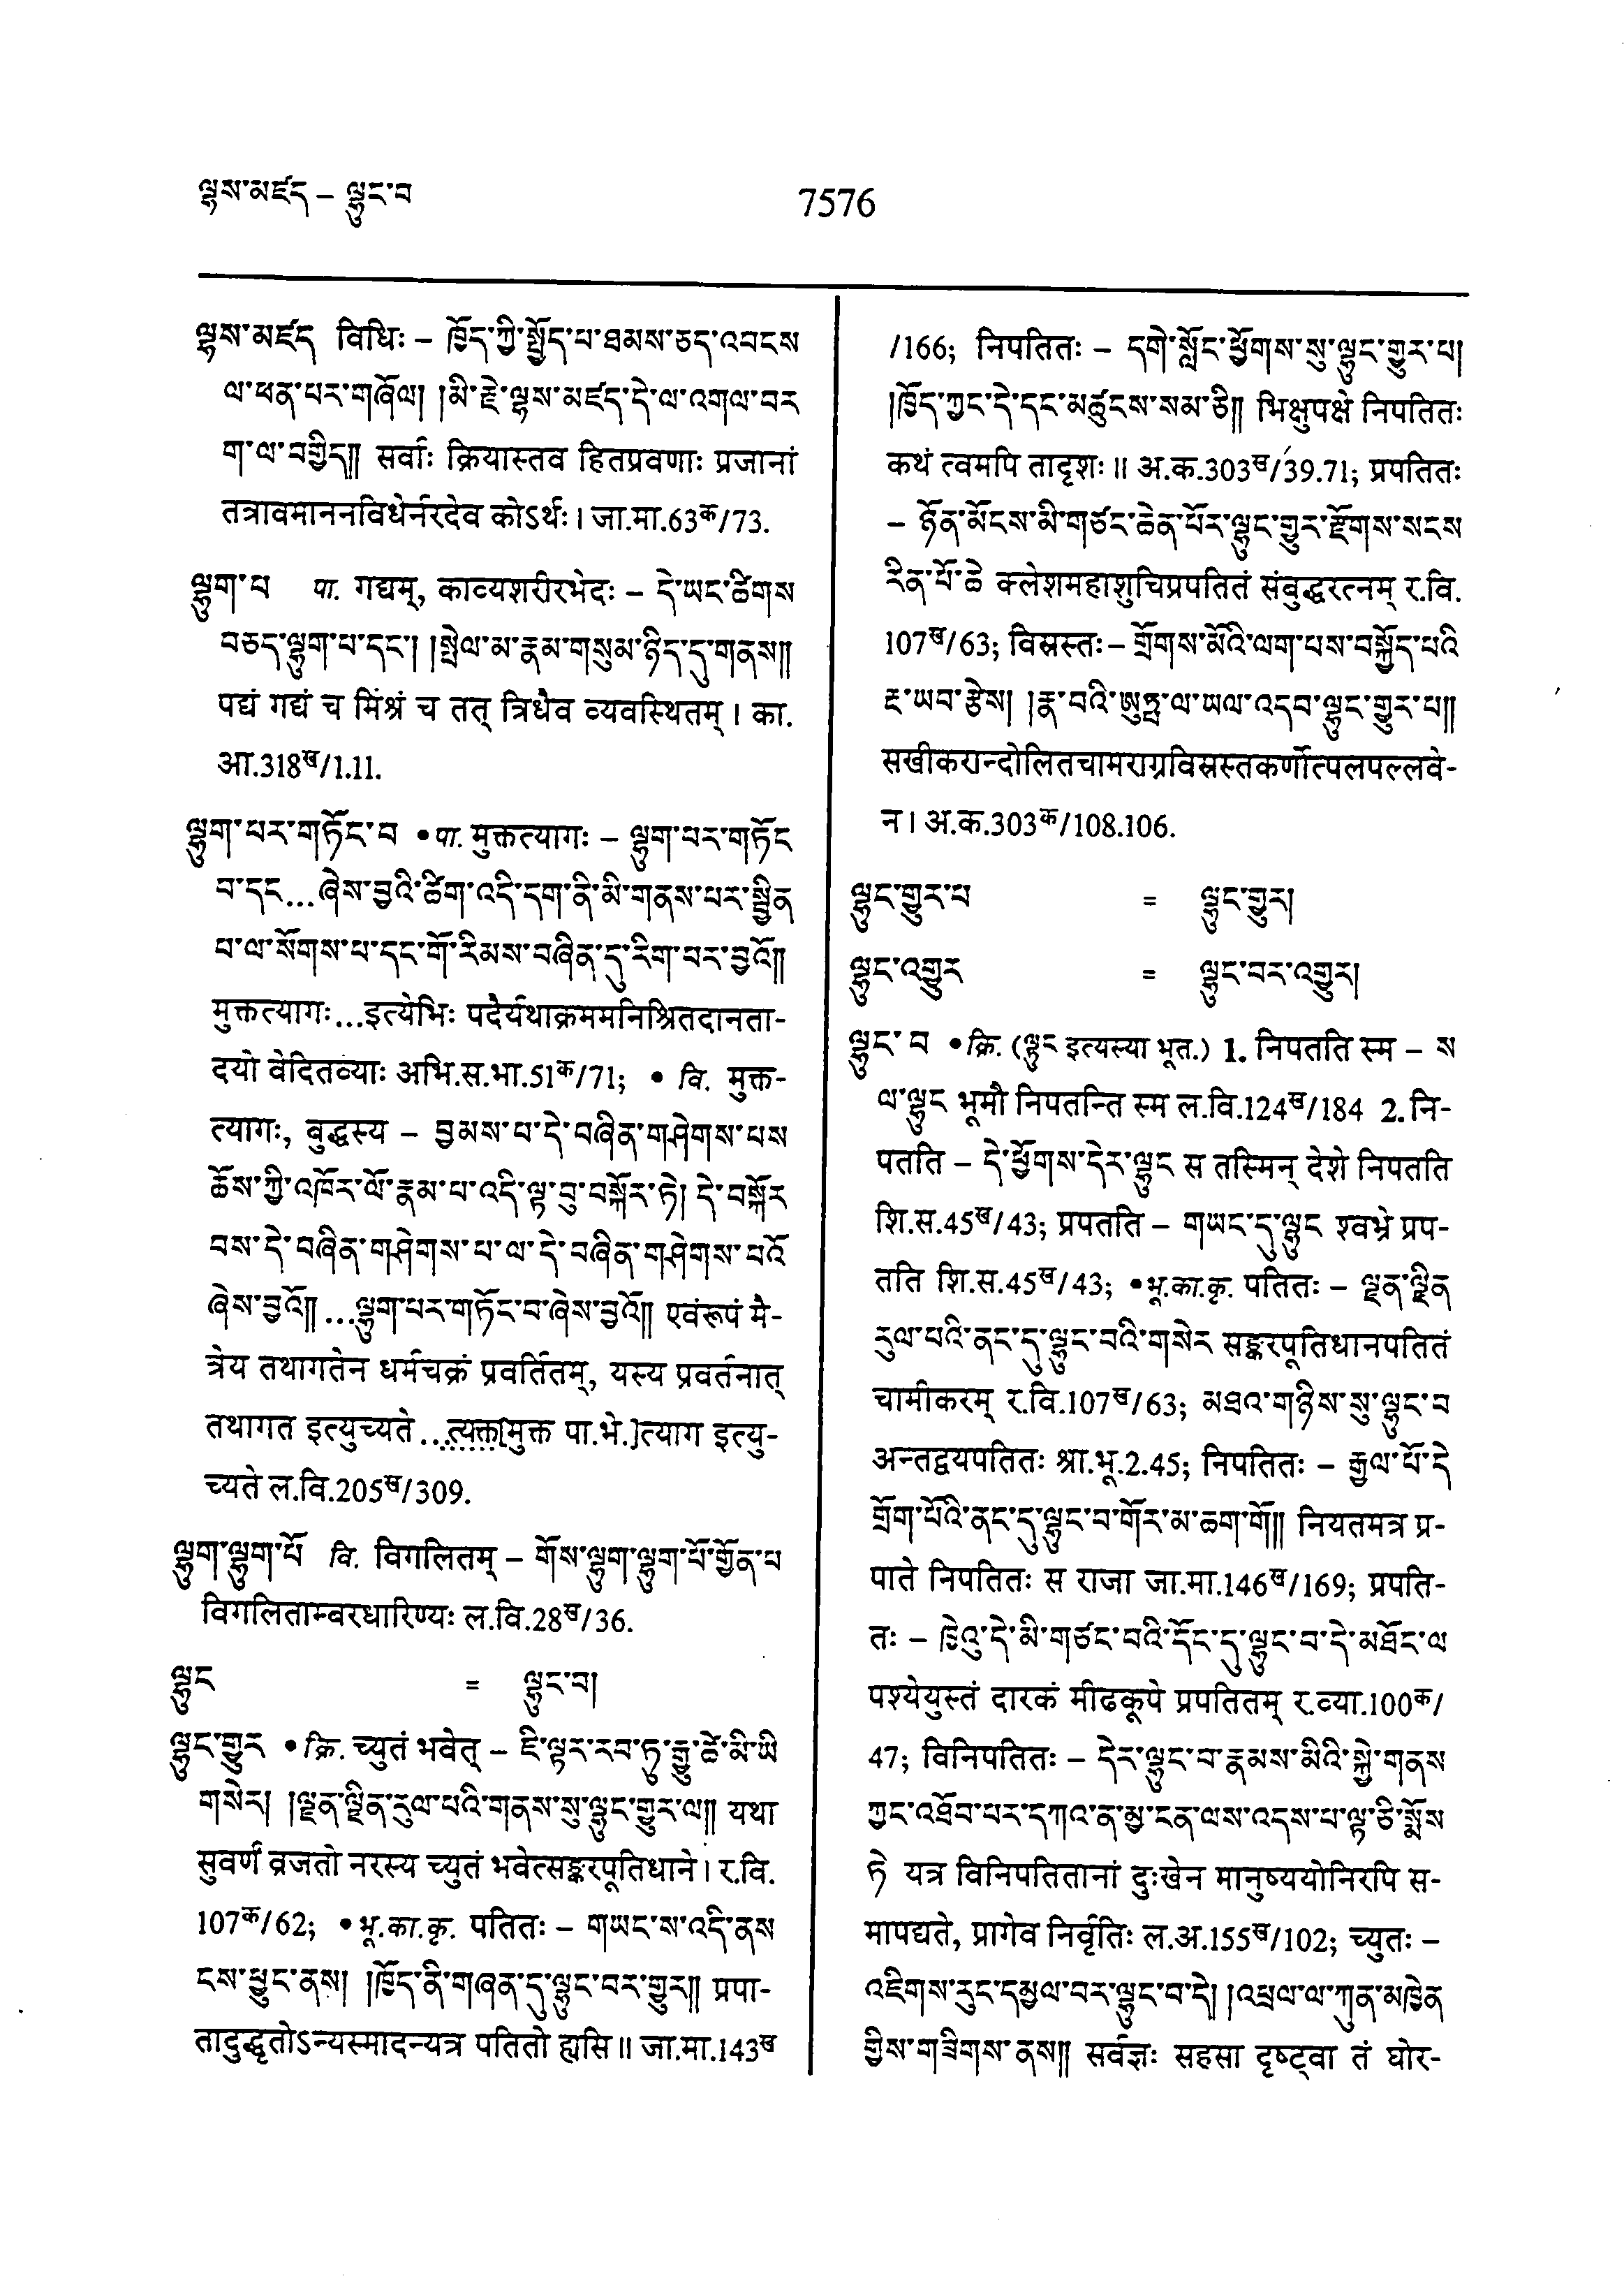 ལྷས་མཛད – ལྷུང་བ
7576
ལྷས་མཛད विधिः – ཁྱོད་ཀྱི་སྤྱོད་པ་ཐམས་ཅད་འབངས
ལ་ཕན་པར་གཞོལ། །མི་རྗེ་ལྷས་མཛད་དེ་ལ་འགལ་བར
ག་ལ་བགྱིད།། सर्वाः क्रियास्तव हितप्रवणाः प्रजानां
तत्रावमाननविधेर्नरदेव कोऽर्थः। जा.मा.63क/73.
ལྷུག་པ पा. गद्यम्, काव्यशरीरभेदः – དེ་ཡང་ཚིགས
བཅད་ལྷུག་པ་དང་། །སྤེལ་མ་རྣམ་གསུམ་ཉིད་དུ་གནས།།
पद्यं गद्यं च मिश्रं च तत् त्रिधैव व्यवस्थितम्। का.
आ.318ख/1.11.
ལྷུག་པར་གཏོང་བ •पा. मुक्तत्यागः – ལྷུག་པར་གཏོང
བ་དང...ཞེས་བྱའི་ཚིག་འདི་དག་ནི་མི་གནས་པར་སྦྱིན
པ་ལ་སོགས་པ་དང་གོ་རིམས་བཞིན་དུ་རིག་པར་བྱའོ།།
मुक्तत्यागः...इत्येभिः पदैर्यथाक्रममनिश्रितदानता-
दयो वेदितव्याः अभि.स.भा.51क/71; • वि. मुक्त-
त्यागः, बुद्धस्य – བྱམས་པ་དེ་བཞིན་གཤེགས་པས
ཆོས་ཀྱི་འཁོར་ལོ་རྣམ་པ་འདི་ལྟ་བུ་བསྐོར་ཏེ། དེ་བསྐོར
བས་དེ་བཞིན་གཤེགས་པ་ལ་དེ་བཞིན་གཤེགས་པའོ
ཞེས་བྱའོ།། ...ལྷུག་པར་གཏོང་བ་ཞེས་བྱའོ།། एवंरूपं मै-
त्रेय तथागतेन धर्मचक्रं प्रवर्तितम्, यस्य प्रवर्तनात्
तथागत इत्युच्यते...त्यक्त[मुक्त पा.भे.]त्याग इत्यु-
च्यते ल.वि.205ख/309.
ལྷུག་ལྷུག་པོ वि. विगलितम् – གོས་ལྷུག་ལྷུག་པོ་གྱོན་པ
विगलिताम्वरधारिण्यः ल.वि.28ख/36.
ལྷུང = ལྷུང་བ།
ལྷུང་གྱུར •क्रि. च्युतं भवेत् – ཇི་ལྟར་རབ་ཏུ་རྒྱུ་ཚེ་མི་ཡི
གསེར། །ལྗན་ལྗིན་རུལ་པའི་གནས་སུ་ལྷུང་གྱུར་ལ།། यथा
सुवर्णं व्रजतो नरस्य च्युतं भवेत्सङ्करपूतिधाने। र.वि.
107क/62; •भू.का.कृ. पतितः – གཡང་ས་འདི་ནས
ངས་ཕྱུང་ནས། །ཁྱོད་ནི་གཞན་དུ་ལྷུང་བར་གྱུར།། प्रपा-
तादुद्धृतोऽन्यस्मादन्यत्र पतितो ह्यसि॥ जा.मा.143ख
/166; निपतितः – དགེ་སློང་ཕྱོགས་སུ་ལྷུང་གྱུར་པ།
།ཁྱོད་ཀྱང་དེ་དང་མཚུངས་སམ་ཅི།། भिक्षुपक्षे निपतितः
कथं त्वमपि तादृशः॥ अ.क.303ख/39.71; प्रपतितः
– ཉོན་མོངས་མི་གཙང་ཆེན་པོར་ལྷུང་གྱུར་རྫོགས་སངས
རིན་པོ་ཆེ क्लेशमहाशुचिप्रपतितं संबुद्धरत्नम् र.वि.
107ख/63; विस्रस्तः – གྲོགས་མོའི་ལག་པས་བསྐྱོད་པའི
རྔ་ཡབ་རྩེས། །རྣ་བའི་ཨུཏྤལ་ཡལ་འདབ་ལྷུང་གྱུར་པ།།
सखीकरान्दोलितचामराग्रविस्रस्तकर्णोत्पलपल्लवे-
न। अ.क.303क/108.106.
ལྷུང་གྱུར་པ = ལྷུང་གྱུར།
ལྷུང་འགྱུར = ལྷུང་བར་འགྱུར།
ལྷུང་བ •क्रि. (ལྟུང इत्यस्या भूत.) 1. निपतति स्म – ས
ལ་ལྷུང भूमौ निपतन्ति स्म ल.वि.124ख/184 2. नि-
पतति – དེ་ཕྱོགས་དེར་ལྷུང स तस्मिन् देशे निपतति
शि.स.45ख/43; प्रपतति – གཡང་དུ་ལྷུང श्वभ्रे प्रप-
तति शि.स.45ख/43; •भू.का.कृ. पतितः – ལྗན་ལྗིན
རུལ་པའི་ནང་དུ་ལྷུང་བའི་གསེར सङ्करपूतिधानपतितं
चामीकरम् र.वि.107ख/63; མཐའ་གཉིས་སུ་ལྷུང་བ
अन्तद्वयपतितः श्रा.भू.2.45; निपतितः – རྒྱལ་པོ་དེ
གྲོག་པོའི་ནང་དུ་ལྷུང་བ་གོར་མ་ཆག་གོ།། नियतमत्र प्र-
पाते निपतितः स राजा जा.मा.146ख/169; प्रपति-
तः – ཁྱེའུ་དེ་མི་གཙང་བའི་དོང་དུ་ལྷུང་བ་དེ་མཐོང་ལ
पश्येयुस्तं दारकं मीढकूपे प्रपतितम् र.व्या.100क/
47; विनिपतितः – དེར་ལྷུང་བ་རྣམས་མིའི་སྐྱེ་གནས
ཀྱང་འཐོབ་པར་དཀའ་ན་མྱ་ངན་ལས་འདས་པ་ལྟ་ཅི་སྨོས
ཏེ यत्र विनिपतितानां दुःखेन मानुष्ययोनिरपि स-
मापद्यते, प्रागेव निर्वृतिः ल.अ.155ख/102; च्युतः –
འཇིགས་རུང་དམྱལ་བར་ལྷུང་བ་དེ། །འཕྲལ་ལ་ཀུན་མཁྱེན
གྱིས་གཟིགས་ནས།། सर्वज्ञः सहसा दृष्ट्वा तं घोर-